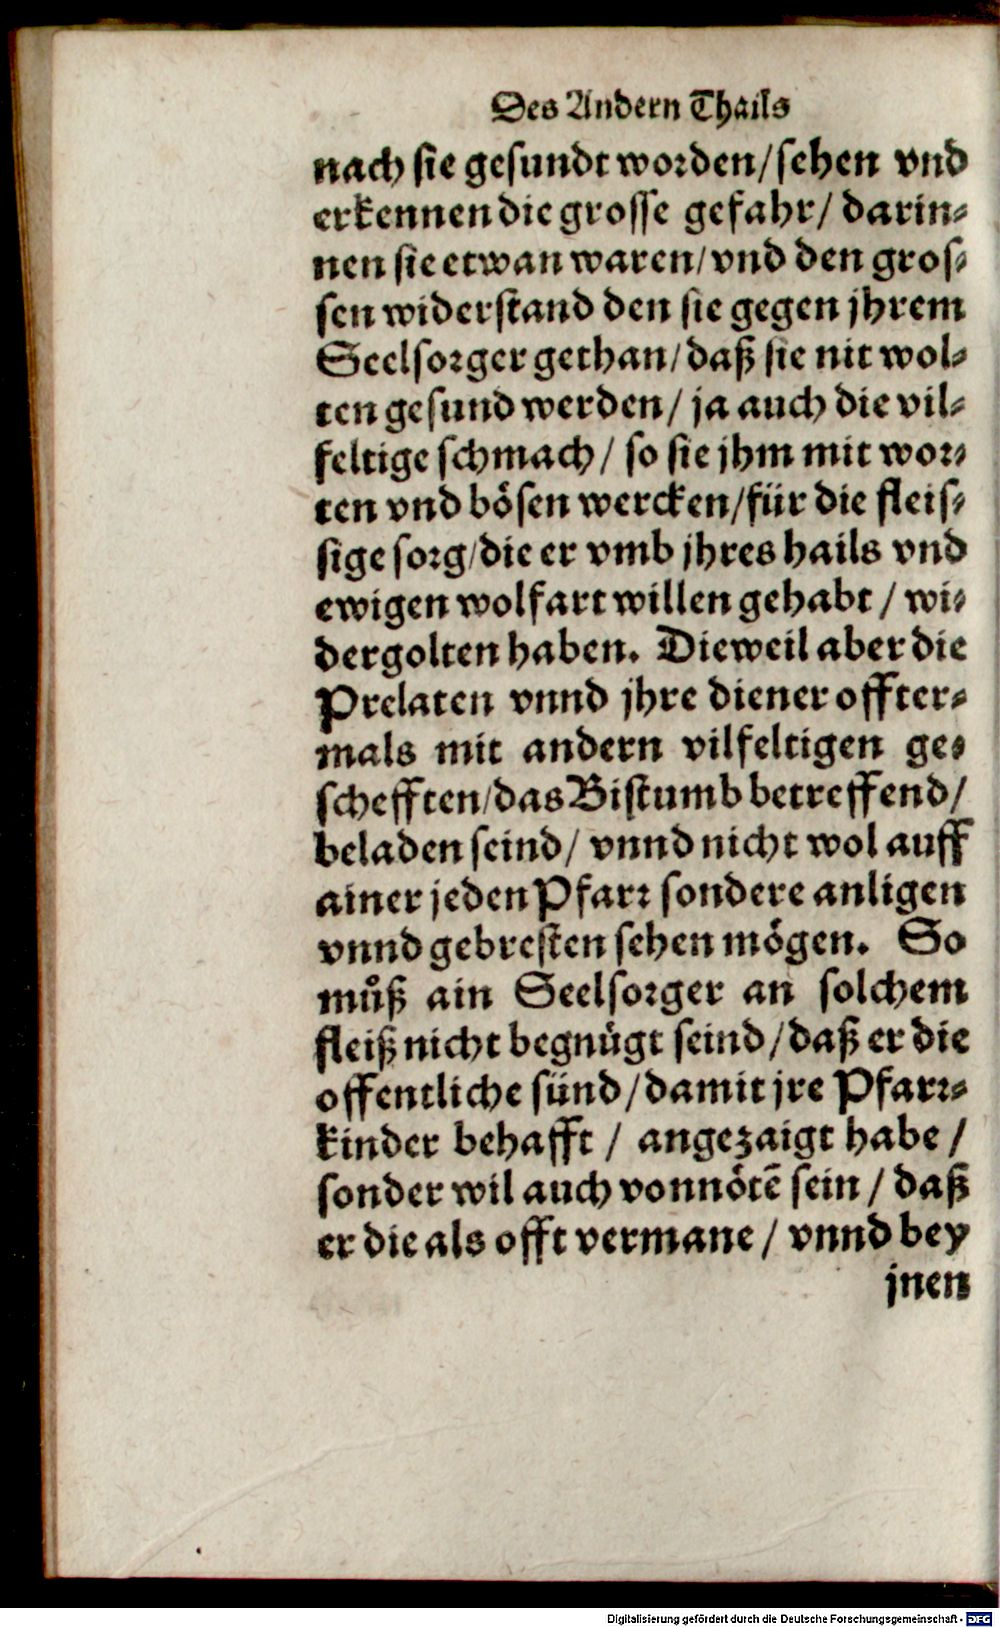 Des Andern Thails
nach sie gesundt worden/sehen vnd
erkennen die grosse gefahr/ darin-
nen sie etwan waren/vnd den gros-
sen widerstand den sie gegen jhrem
Seelsorger gethan/daß sie nit wol-
ten gesund werden/ ja auch die vil-
feltige schmach/ so sie jhm mit wor-
ten vnd bösen wercken/für die fleis-
sige sorg/die er vmb jhres hails vnd
ewigen wolfart willen gehabt / wi-
dergolten haben. Dieweil aber die
Prelaten vnnd jhre diener offter-
mals mit andern vilfeltigen ge-
schefften/das Bistumb betreffend/
beladen seind/ vnnd nicht wol auff
ainer jeden Pfarr sondere anligen
vnnd gebresten sehen mögen. So
muͦß ain Seelsorger an solchem
fleiß nicht begnügt seind/daß er die
offentliche sünd/damit jre Pfarr-
kinder behafft / angezaigt habe /
sonder wil auch vonnötē sein / daß
er die als offt vermane / vnnd bey
jnen
Digitalisierung gefördert durch die Deutsche Forschungsgemeinschaft - DFG